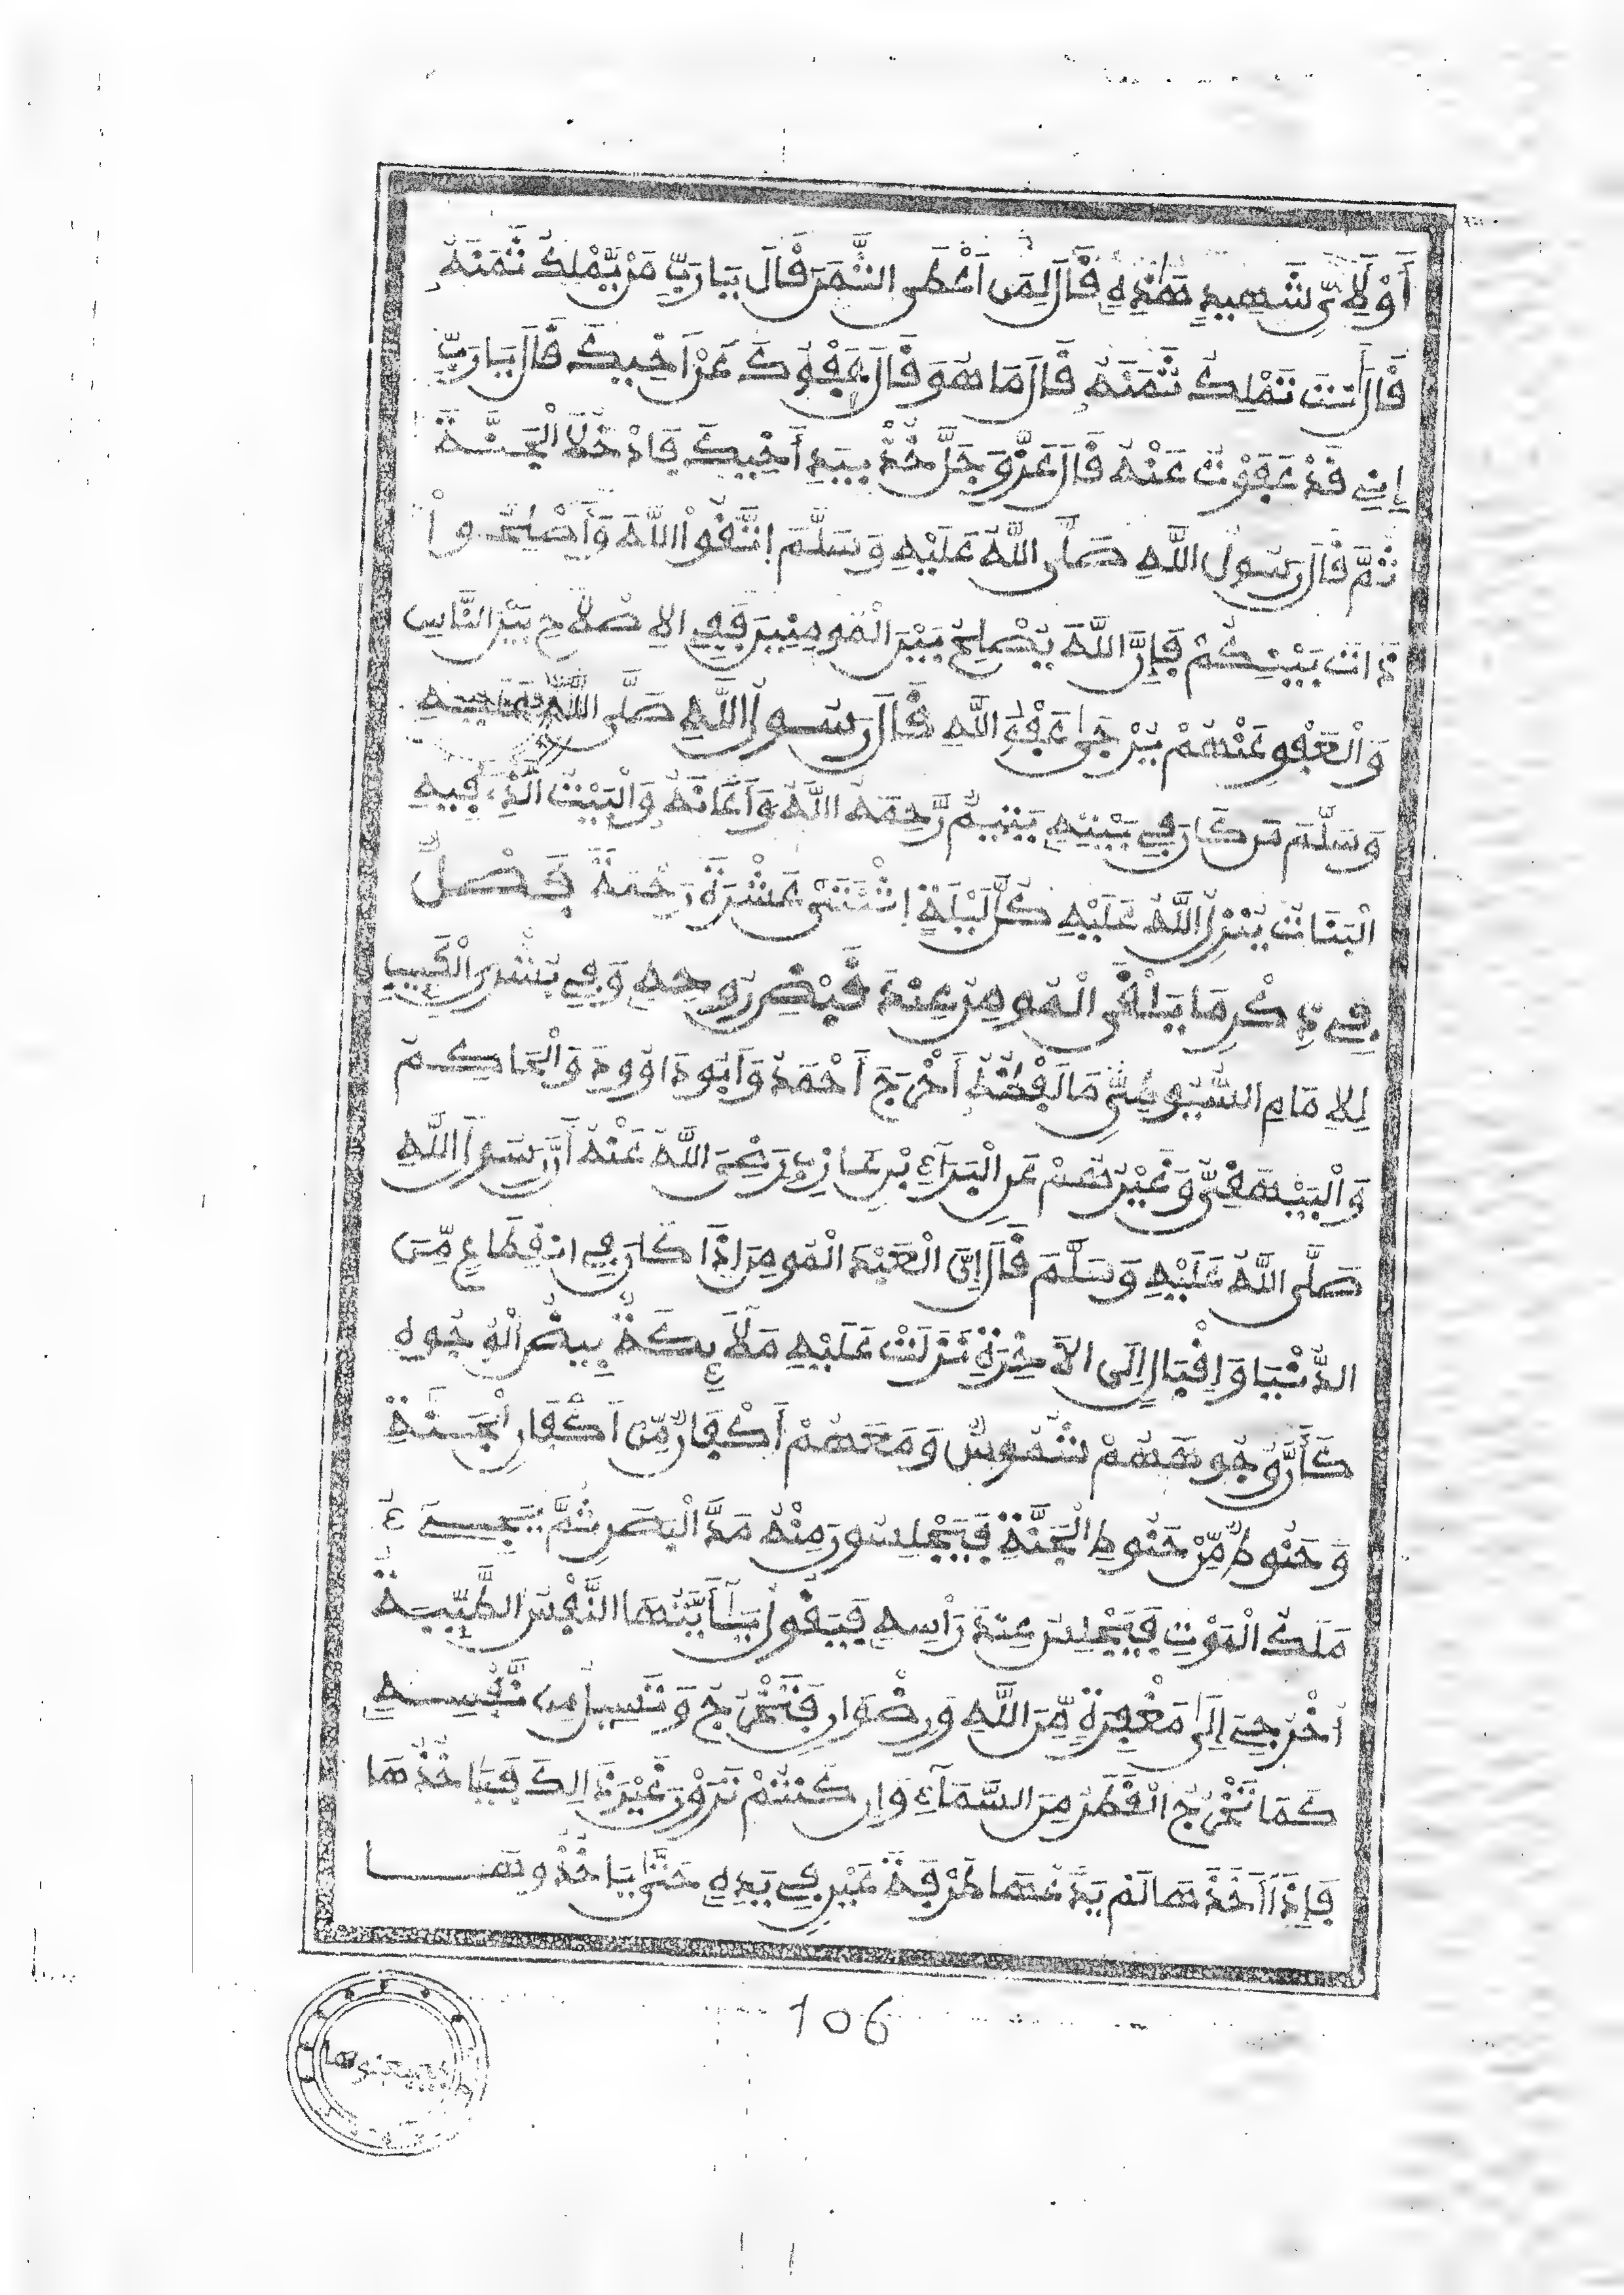 أَوْ لِأَيِّ شَهِيدٍ هَٰذِهِ قَالَ لِمَنْ أَعْطَى الثَّمَنَ قَالَ يَا رَبِّ مَنْ يَّمْلِكُ ثَمَنَهُ
قَالَ أَنتَ تَمْلِكُ ثَمَنَهُ قَالَ مَا هُوَ قَالَ عَفْوُكَ عَنْ أَخِيكَ قَالَ يَا رَبِّ
إِنِّي قَدْ عَفَوْتُ عَنْهُ قَالَ عَزَّ وَجَلَّ خُذْ بِيَدِ أَخِيكَ فَادْخُلَا الْجَنَّةَ
ثُمَّ قَالَ رَسُولُ اللَّهِ صَلَّى اللَّهُ عَلَيْهِ وَسَلَّمَ اتَّقُوا اللَّهَ وَأَصْلِحُوا
ذَاتَ بَيْنِكُمْ فَإِنَّ اللَّهَ يُصْلِحُ بَيْنَ الْمُومِنِينَ فَفِي الِاصْلَاحِ بَيْنَ النَّاسِ
وَالْعَفْوِ عَنْهُمْ يُرْجَىٰ عَفْوُ اللَّهِ قَالَ رَسُولُ اللَّهِ صَلَّى اللَّهُ عَلَيْهِ
وَسَلَّمَ مَن كَانَ فِي بَيْتِهِ يَتِيمٌ رَّحِمَهُ اللَّهُ وَأَعَانَهُ وَالْبَيْتُ الَّذِي فِيهِ
الْبَنَاتُ يُنْزِلُ اللَّهُ عَلَيْهِ كُلَّ لَيْلَةٍ اثْنَتَىْ عَشْرَةَ رَحْمَةً فَصْلٌ
فِي ذِكْرِ مَا يَلْقَى الْمُومِنُ عِنْدَ قَبْضِ رُوحِهِ وَفِي بُشْرَى الْكَئِيبِ
لِلِامَامِ السُّيُوطِيِّ مَا لَفْظُهُ أَخْرَجَ أَحْمَدُ وَأَبُو دَاوُودَ وَالْحَاكِمُ
وَالْبَيْهَقِيُّ وَغَيْرُهُمْ عَنِ الْبَرَآءِ بْنِ عَازِبٍ رَضِيَ اللَّهُ عَنْهُ أَنَّ رَسُولَ اللَّهِ
صَلَّى اللَّهُ عَلَيْهِ وَسَلَّمَ قَالَ إِنَّ الْعَبْدَ الْمُومِنَ إِذَا كَانَ فِي انقِطَاعٍ مِّنَ
الدُّنْيَا وَإِقْبَالٍ إِلَى الَاخِرَةِ نَزَلَتْ عَلَيْهِ مَلَائِكَةٌ بِيضُ الْوُجُوهِ
كَأَنَّ وُجُوهَهُمْ شُمُوسٌ وَمَعَهُمْ أَكْفَانٌ مِّنْ أَكْفَانِ الْجَنَّةِ
وَحَنُوطٌ مِّنْ حَنُوطِ الْجَنَّةِ فَيَجْلِسُونَ مِنْهُ مَدَّ الْبَصَرِ ثُمَّ يَجِيءُ
مَلَكُ الْمَوْتِ فَيَجْلِسُ عِنْدَ رَأْسِهِ فَيَقُولُ يَا أَيَّتُهَا النَّفْسُ الطَّيِّبَةُ
اخْرُجِي إِلَىٰ مَغْفِرَةٍ مِّنَ اللَّهِ وَرِضْوَانٍ فَتَخْرُجُ وَتَسِيلُ مِن نَّفْسِهِ
كَمَا تَخْرُجُ الْقَطْرُ مِنَ السَّمَآءِ وَإِن كُنتُمْ تَرَوْنَ غَيْرَ ذَالِكَ فَيَاخُذُهَا
فَإِذَا أَخَذَهَا لَمْ يَدَعْهَا طَرْفَةَ عَيْنٍ فِي يَدِهِ حَتَّىٰ يَاخُذُوهَا
106